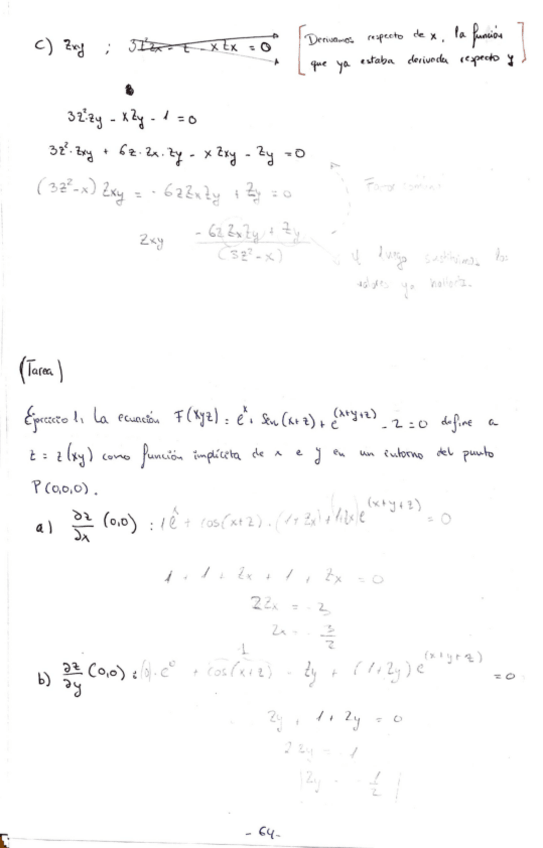 c) Zxy ; 3z²zx - z - xzx = 0 [Derivamos respecto de x, la función
que ya estaba derivada respecto y]
3z²·zy - xzy - 1 = 0
3z²·zxy + 6z·zx·zy - xzxy - zy = 0
(3z²-x) zxy = -6zzxzy + zy = 0
Factor común
zxy -6zzxzy + zy
(3z²-x)
y luego sustituimos los
valores ya
(Tarea)
Ejercicio 1: La ecuación F(xyz) = eˣ + Sen(x+z) + e^(x+y+z) - 2 = 0 define a
z = z(xy) como función implícita de x e y en un entorno del punto
P(0,0,0).
a) ∂z/∂x (0,0) : 1eˣ + cos(x+z)·(1+zx) + (1+zx)e^(x+y+z) = 0
1 + 1 + zx + 1 + zx = 0
2zx = -3
zx = -3/2
b) ∂z/∂y (0,0) : (0)·e⁰ + cos(x+z) · zy + (1+zy) e^(x+y+z) = 0
1
zy + 1 + zy = 0
2zy = -1
zy = -1/2
- 64 -